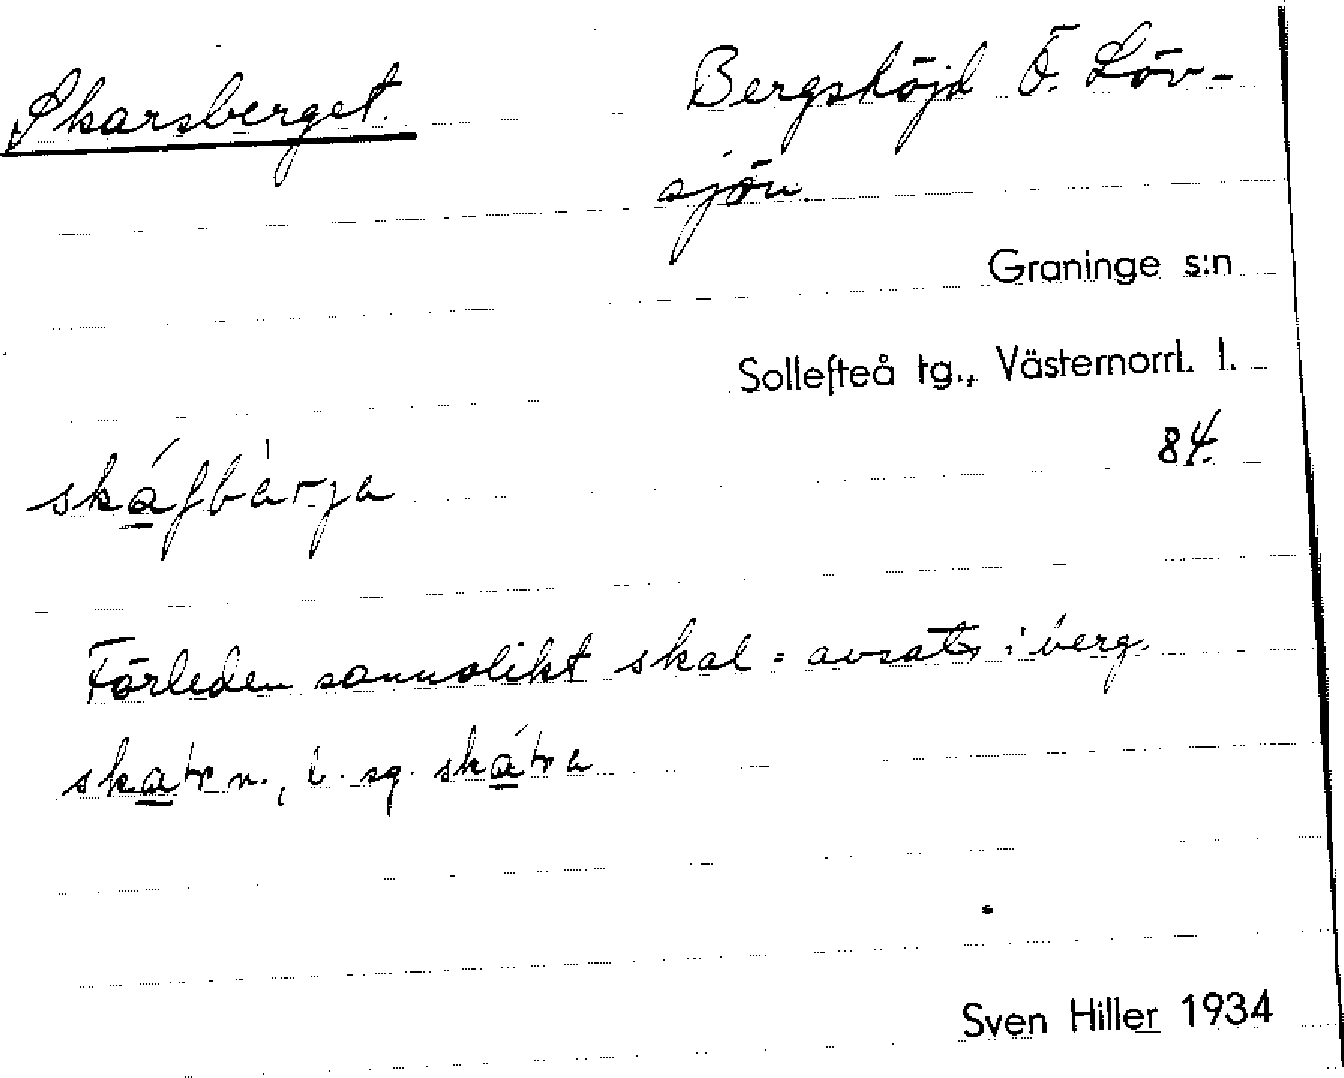 Skarsberget. Bergshöjd Ö. Löv-
sjön
Graninge s:n
Sollefteå tg., Västernorrl. l.
84.
skáʃbàrja
Förleden sannolikt skal = avsats i berg.
skatr n., b. sg. skátra
Sven Hiller 1934